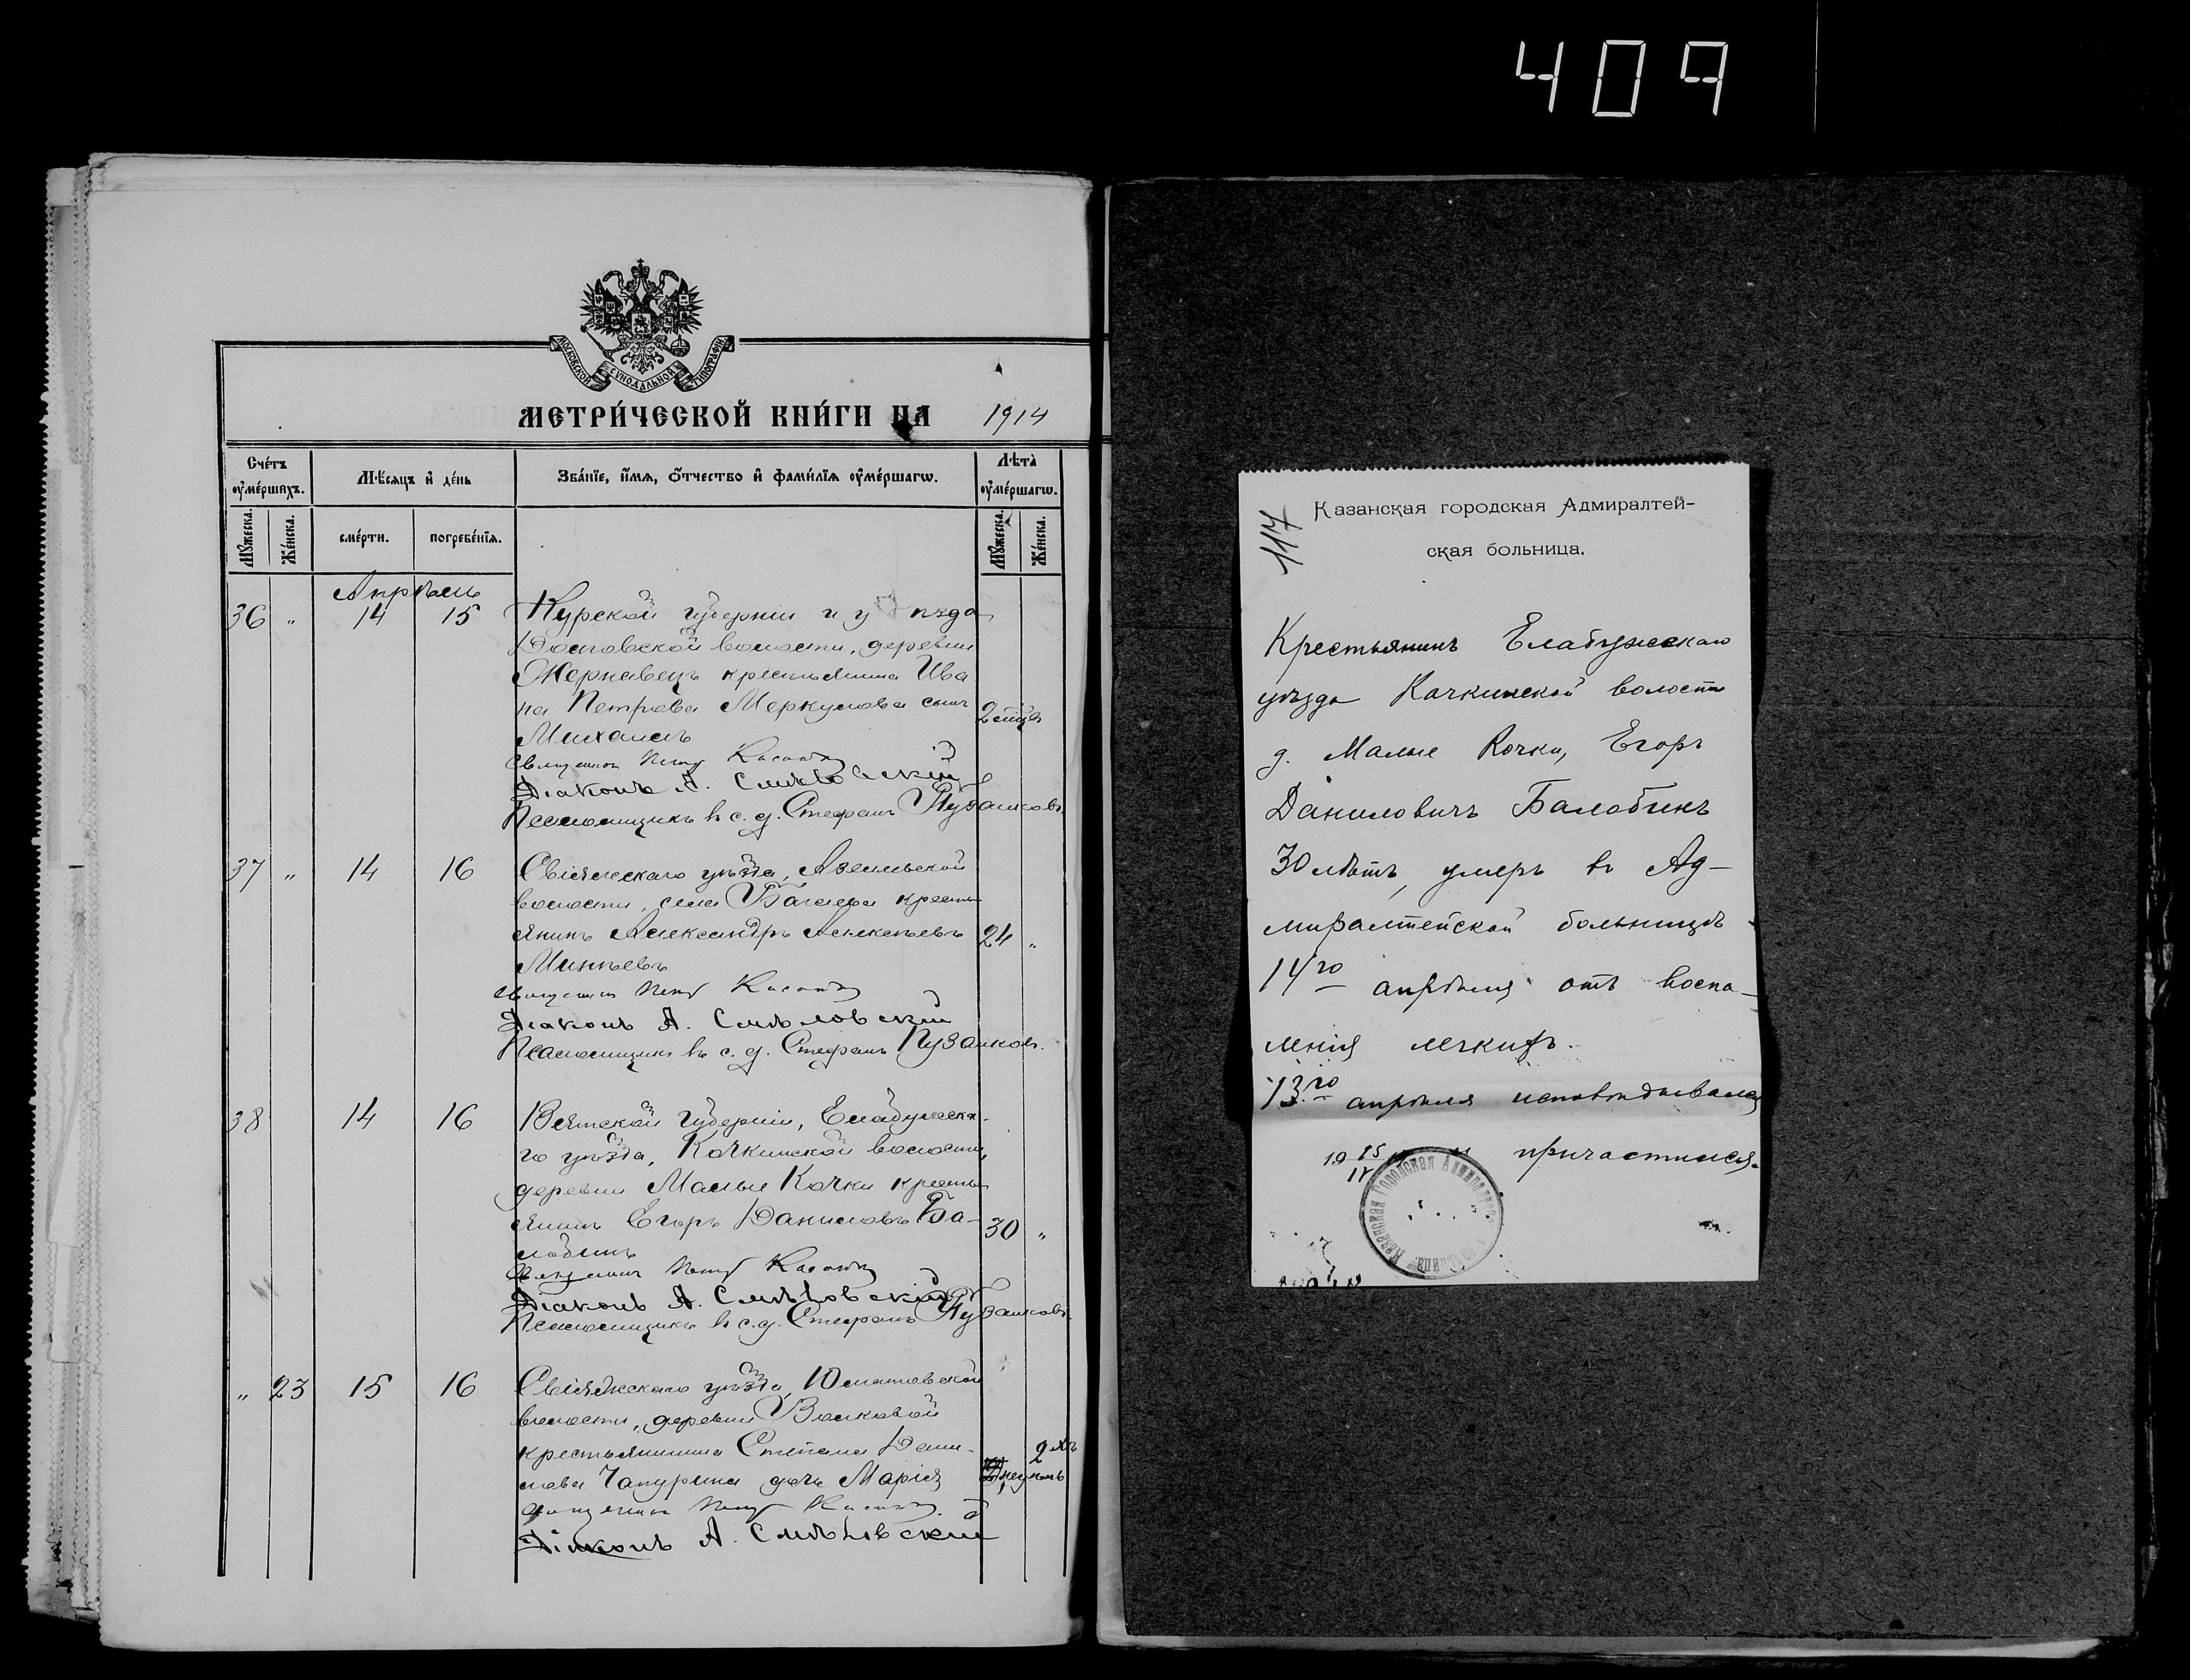 409
МОСКОВСКОЙ СѴНОДАЛЬНОЙ ТИПОГРАФІИ
МЕТРИ́ЧЕСКОЙ КНИ́ГИ НА 1914
Сче́тъ ᲂу҆ме́ршихъ.
Мѣ́сяцъ и҆ де́нь
Зва́нїе, и҆́мѧ, ѻ҆́тчество и҆ фами́лїѧ ᲂу҆ме́ршагѡ.
Лѣта̀ ᲂу҆ме́ршагѡ.
Мꙋ́жеска.
Же́нска.
сме́рти.
погребе́нїѧ.
Мꙋ́жеска.
Же́нска.
Апрѣль
36 „ 14 15 Курской губерніи и уѣзда
волости, деревни
Жерновецъ крестьянина Ива
на Петрова Меркулова сынъ
Михаилъ
Священникъ Петръ
Діаконъ А. Смѣловскій
Псаломщикъ въ с. д. Стефанъ Пузанковъ
37 „ 14 16 Свіяжскаго уѣзда, Азелеевской
волости, села крестъ
янинъ Александръ Алексѣевъ 24 „
Минѣевъ
Священникъ Петръ
Діаконъ А. Смѣловскій
Псаломщикъ въ с. д. Стефанъ Пузанковъ.
38 14 16 Вятской губерніи, Елабужска
го уѣзда, Кочкинской волости,
деревни Малые Кочки кресть
янинъ Егоръ Даниловъ Ба- 30 „
лобинъ
Священникъ Петръ
Діаконъ А. Смѣловскій
Псаломщикъ въ с. д. Стефанъ Пузанковъ.
„ 23 15 16 Свіяжскаго уѣзда, Юматовской
волости, деревни Волковой
крестьянина Степана Дани-
лова Чапурина дочь Марія
Священникъ Петръ
Діаконъ А. Смѣловскій
117
Казанская городская Адмиралтей-
ская больница.
Крестьянинъ Елабужскаго
уѣзда Качкинской волости
д. Малые Кочки, Егоръ
Даниловичъ Балобинъ
30 лѣтъ, умеръ въ Ад-
миралтейской больницѣ
14го апрѣля отъ воспа-
ленія легкихъ.
13го апрѣля исповѣдывался
и причастился.
19 15/IV
Казанская Городская Адмиралт. больница